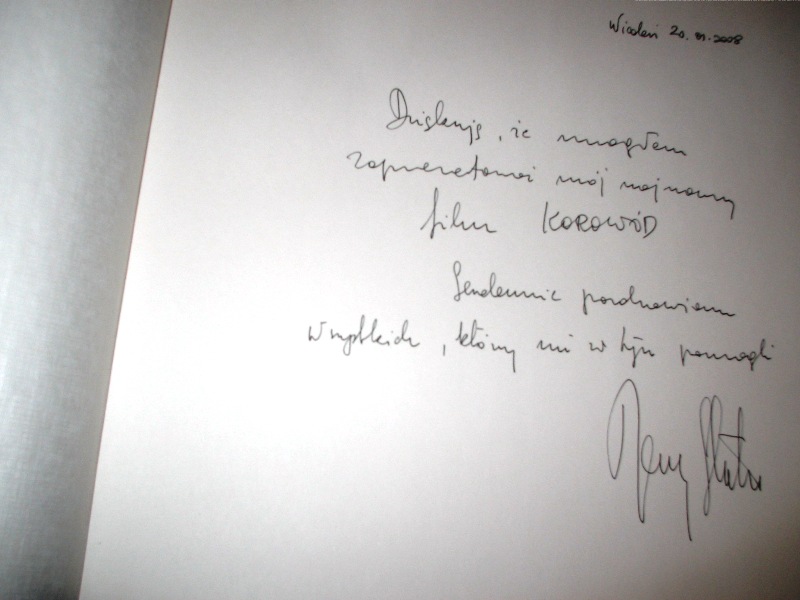 Wiedeń 20.01.2008
Dziękuję, że mogłem
zaprezentować mój najnowy
film KOROWÓD
Serdecznie pozdrawiam
wszystkich, którzy mi w tym pomogli
Jerzy Stuhr